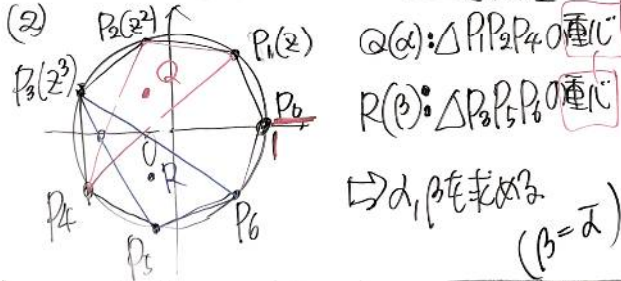 (2)
P₂(z²)
P₁(z)
P₃(z³)
Q
P₀
1
O
R
P₄
P₅
P₆
Q(α):△P₁P₂P₄の重心
R(β):△P₃P₅P₆の重心
⇨α,βを求める
(β=ᾱ)